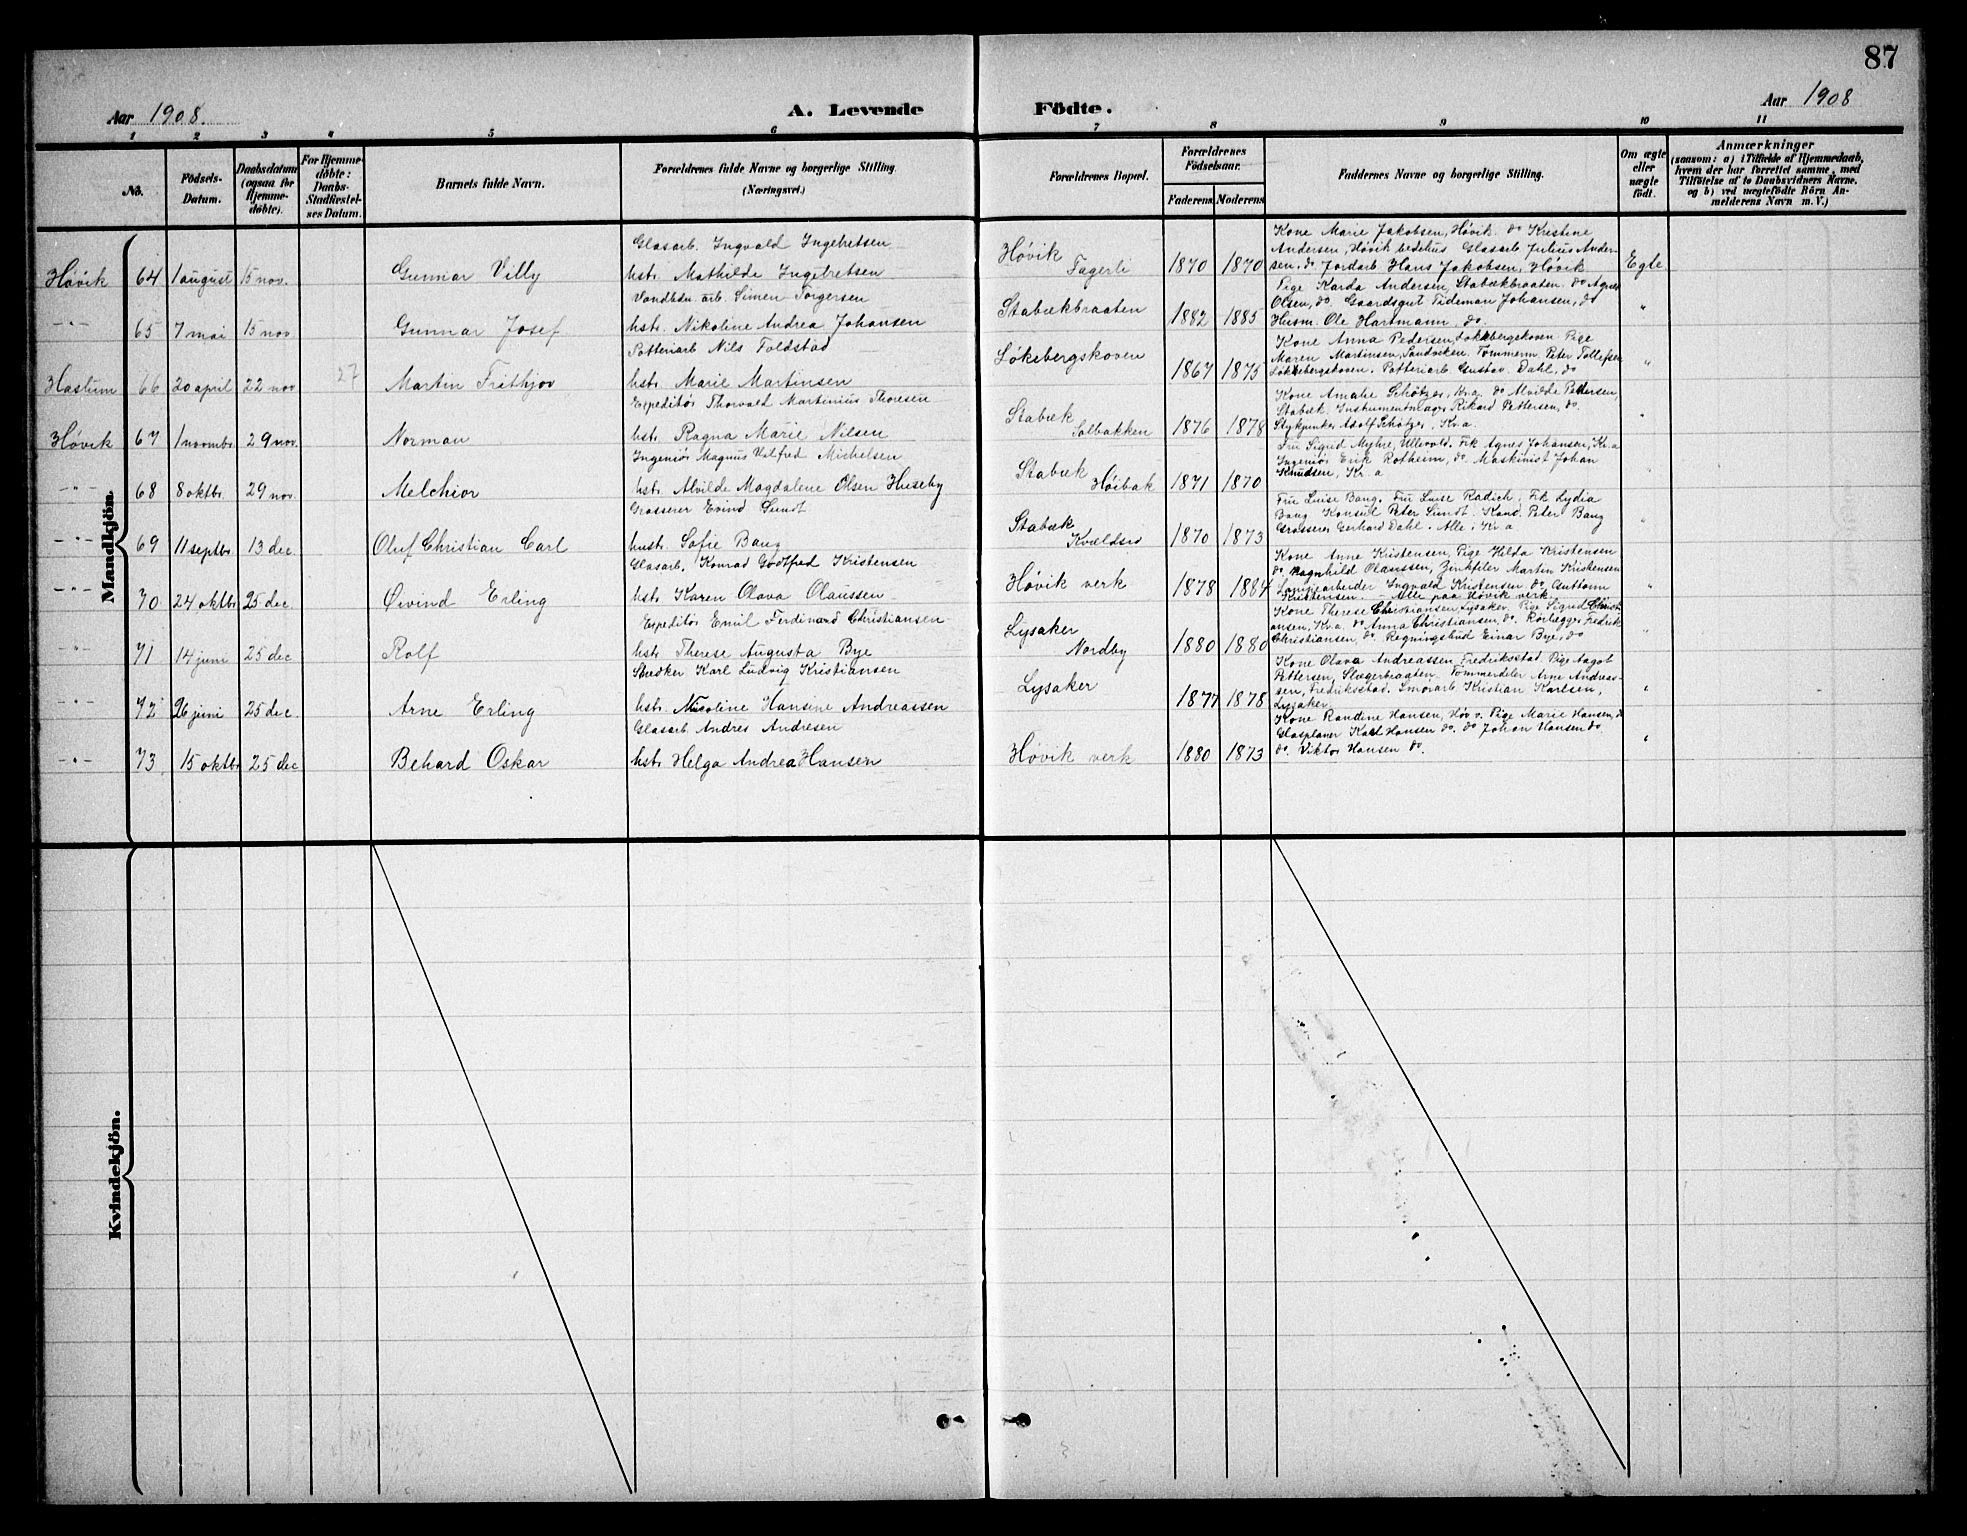 87
Aar 1908.
A. Levende Födte.
Aar 1908
1 2 3 4 5 6 7 8 9 10 11
No.
Födsels-
Datum.
Daabsdatum
(ogsaa for
Hjemme-
döbte).
For Hjemme-
döbte:
Daabs-
Stadfæstel-
ses Datum.
Barnets fulde Navn.
Forældrenes fulde Navne og borgerlige Stilling
(Næringsvei.)
Forældrenes Bopæl.
Forældrenes
Födselsaar.
Faderens Moderens
Faddernes Navne og borgerlige Stilling.
Om ægte
eller
uægte
födt.
Anmærkninger
(saasom: a) i Tilfælde af Hjemmedaab,
hvem der har forrettet samme, med
Tilföielse af to Daabsvidners Navne,
og b) ved uægtefödte Börn An-
melderens Navn m. V.)
Mandkjön.
Høvik 64 1 august 15 nov. Gunnar Villy
Glasarb. Ingvald Ingebretsen
hstr. Mathilde Ingebretsen
Høvik
Fagerli
1870 1870
Kone Marie Jakobsen, Høvik. do Kristene
Andersen, Høvik bedehus Glasarb. Julius Ander-
sen, do. Jordarb. Hans Jakobsen, Høvik
Egte
-"- 65 7 mai 15 nov Gunnar Josef
Vandledn. arb. Simen Torgersen
hstr. Nikoline Andrea Johansen
Stabækbraaten
1882 1885
Pige Karda Andersen, Stabækbraaten. do Agnes
Olsen, do. Gaardsgut Tideman Johansen, do
Husm. Ole Hartmann, do.
"
Haslum 66 20 april 22 nov 27 Martin Frithjov
Potteriarb Nils Toldstad
hstr. Marie Martinsen
Løkebergskoven
1867 1875
Kone Anna Pedersen, Løkkebergskoven Pige
Maren Martinsen, Sandviken. Tømmerm. Peter Tollefsen
Løkkebergskoven. Potteriarb Gustav. Dahl, do
"
Høvik 67 1 novmbr. 29 nov. Norman
Expeditør Thorvald Martinius Thoresen
hstr. Ragna Marie Nilsen
Stabæk
Solbakken
1876 1878
Kone Amalie Schötzer, Kr.a. do Alvilde Pettersen,
Stabæk. Instrumentmager Rikard Pettersen, do.
Stykjunker Adolf Schötzer, Kr.a.
"
-"- 68 8 oktbr. 29 nov. Melchior
Ingeniør Magnus Valfred Michelsen
hstr. Alvilde Magdalene Olsen Huseby
Stabæk
Høibak
1871 1870
Fru Sigrid Myhre, Ullevold. Frk Agnes Johansen, Kr.a
Ingeniør Erik Rotheim, do. Maskinist Johan
Knudsen, Kr.a
"
-"- 69 11 septbr. 13 dec. Oluf Christian Carl
Grosserer Evind Sundt
hustr. Sofie Bang
Stabæk
Kvældsro
1870 1873
Fru Luise Bang. Fru Luise Radich, Frk Lydia
Bang Konsul Peter Sundt. Kand. Peter Bang
Grosserer Gerhard Dahl. Alle i Kr.a
"
-"- 70 24 oktbr 25 dec Øivind Erling
Glasarb. Konrad Godtfred Kristensen
hstr. Karen Olava Olaussen
Høvik verk
1878 1884
Kone Anne Kristensen, Pige Hilda Kristensen
do Ragnhild Olaussen, Zinkfeler Martin Kristensen
Lampearbeider Ingvald Kristensen do, Guttorm
Kristensen. - Alle paa Høvik verk.
"
-"- 71 14 juni 25 dec Rolf
Expeditør Emil Ferdinand Christiansen
hstr. Therese Augusta Bye
Lysaker
Nordby
1880 1880
Kone Therese Christiansen, Lysaker. Pige Sigrid Christi
ansen, Kr.a. do Anna Christiansen, do. Rørlegger Fredrik
Christiansen, do. Regningsbud Einar Bye, do
"
-"- 72 26 juni 25 dec. Arne Erling
Snedker Karl Ludvig Kristiansen
hstr. Nicoline Hansine Andreassen
Lysaker
1877 1878
Kone Olava Andreassen, Fredriksstad. Pige Aagot
Pettersen, Slægerbraaten. Tømmerdeler Arne Andreas-
sen, Fredriksstad. Smørarb. Kristian Karlsen,
Lysaker.
"
-"- 73 15 oktbr 25 dec Behard Oskar
Glasarb Andres Andresen
hstr. Helga Andrea Hansen
Høvik verk
1880 1873
Kone Randine Hansen, Høv v. Pige Marie Hansen, do
Glasplaner Karl Hansen do. do Johan Hansen do
do. Viktor Hansen do.
"
Kvindekjön.